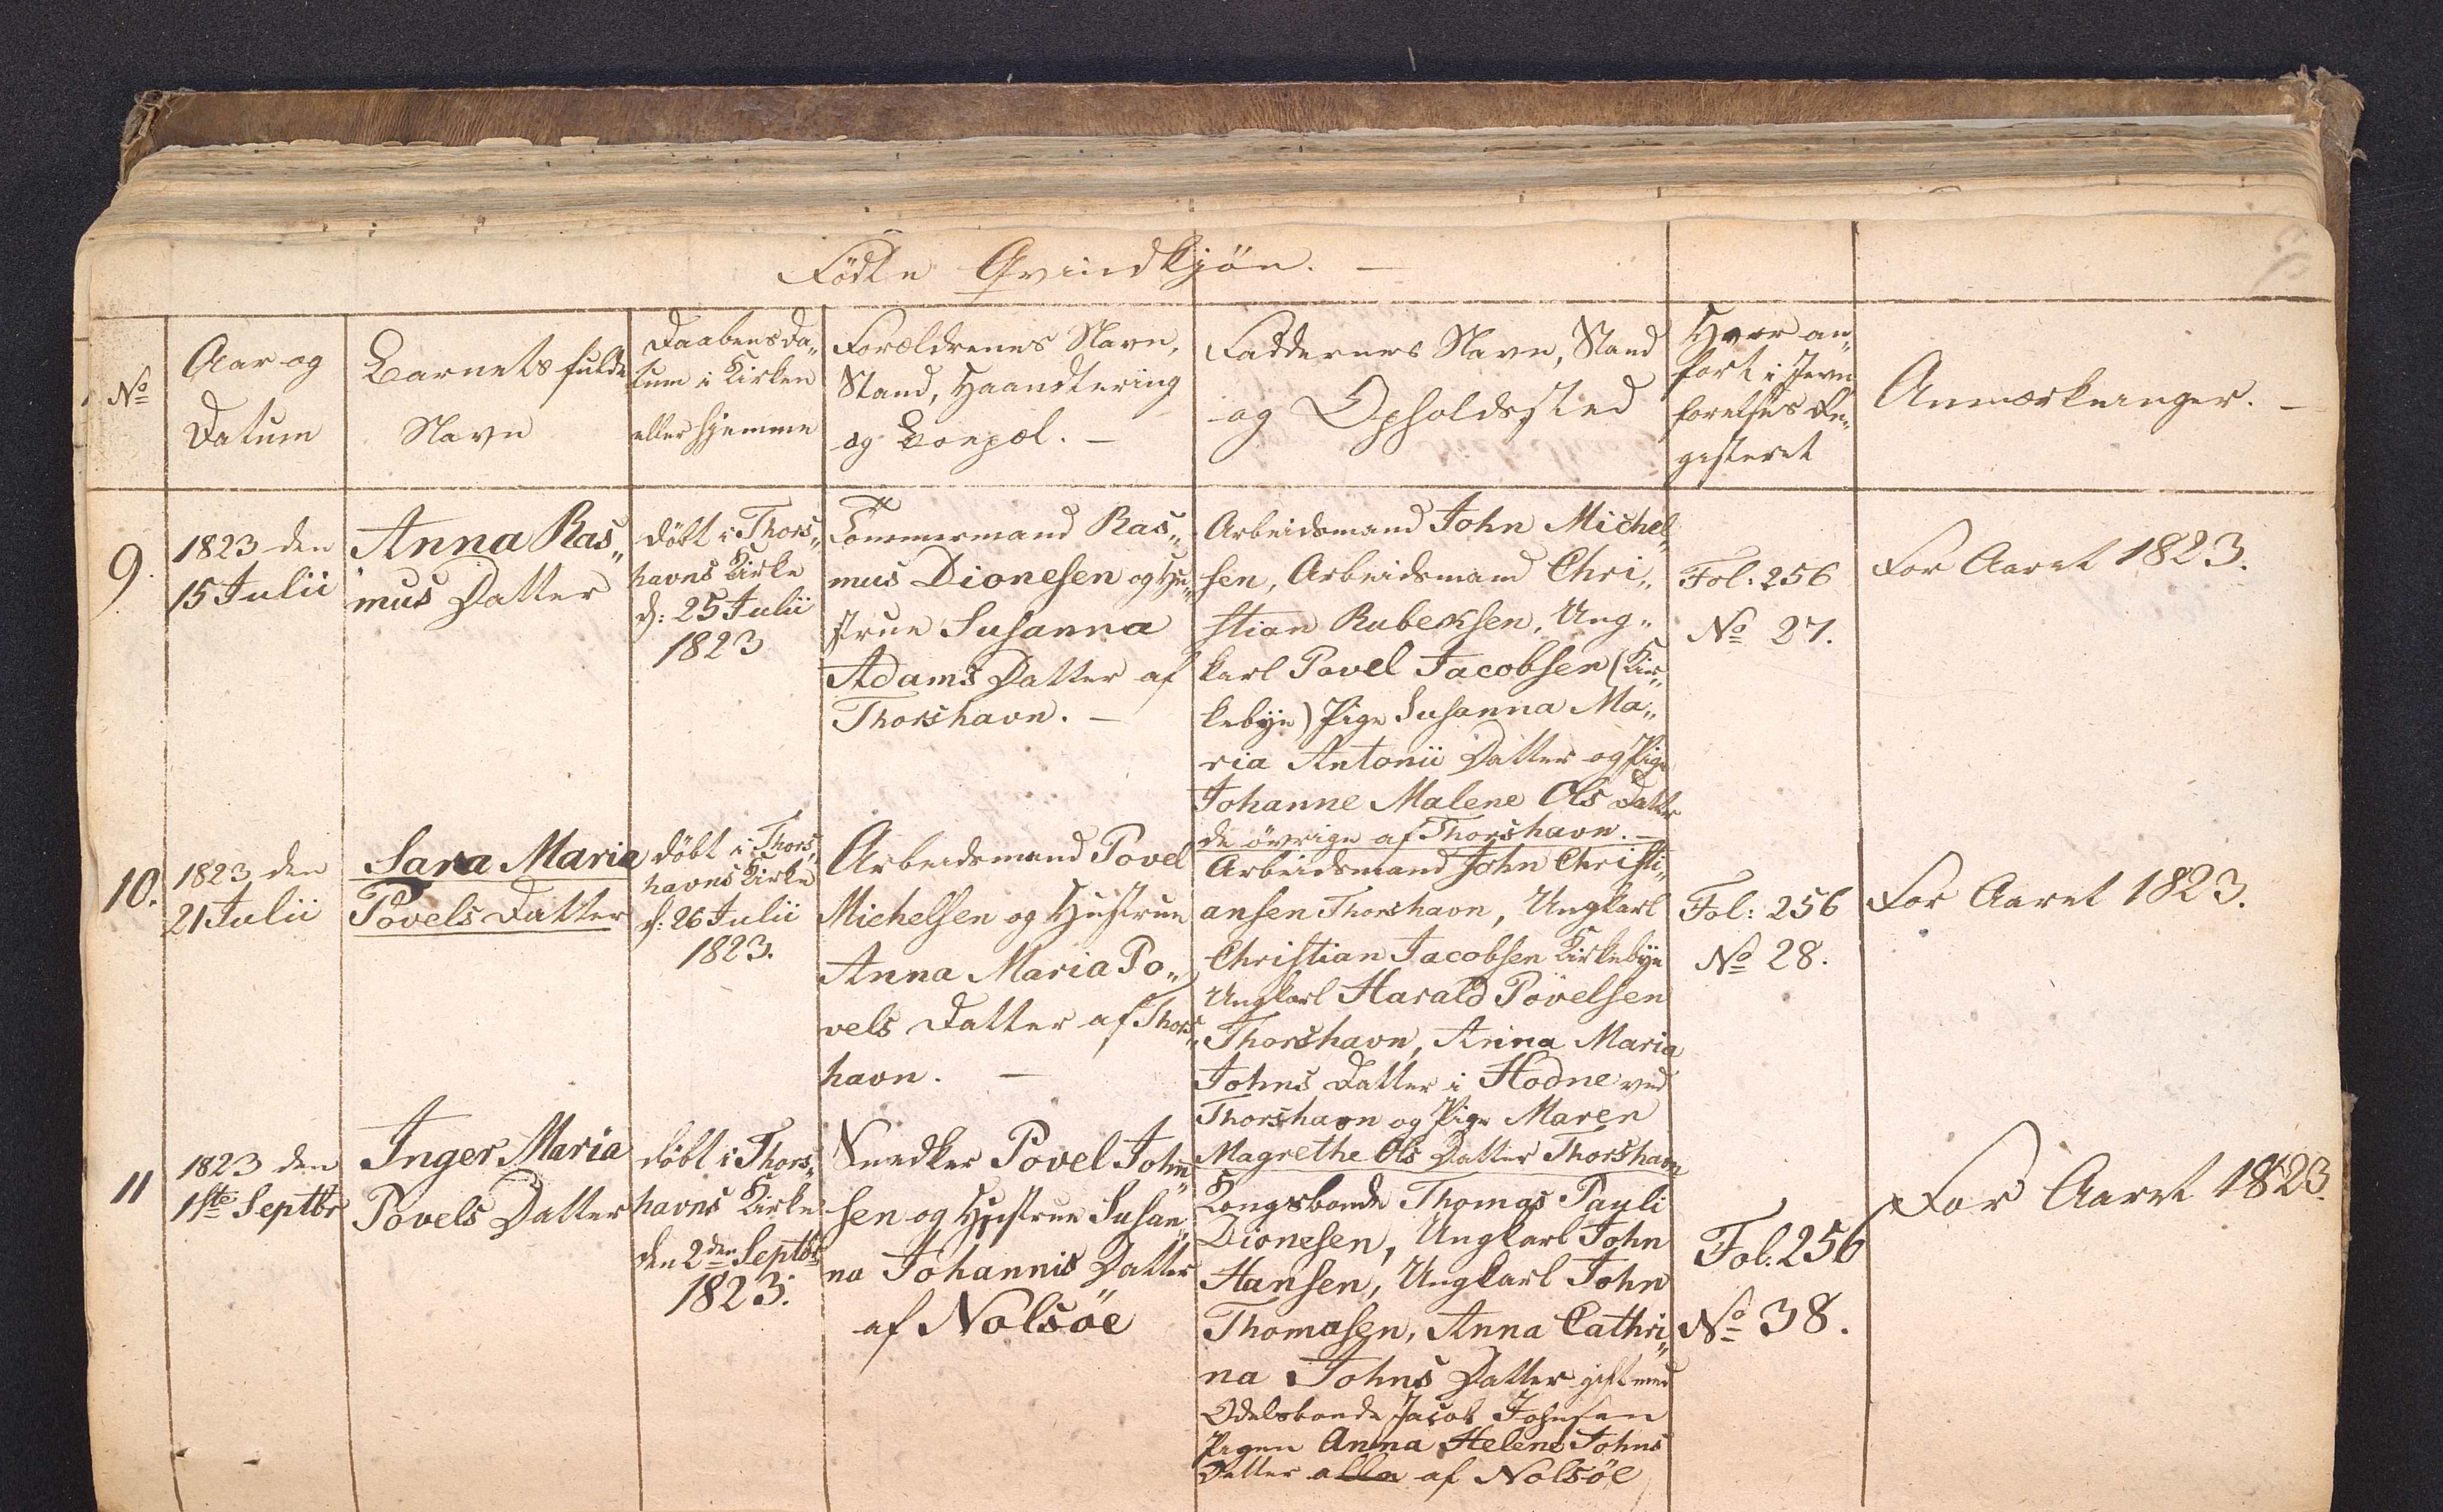 Fødte Qvindkjön. —
No
Aar og
Datum
Barnets fulde
Navn
Daabens Da„
tum i Kirken
eller hjemme
Forældrenes Navn,
Stand, Haandtering
og Boepæl. —
Faddernes Navn, Stand
og Opholdssted
Hvor an„
fört i Jevn
förelses Re„
gisteret
Anmærkninger. —
9.
1823 den
15 Julii
Anna Ras„
mus Datter
döbt i Thors„
havns Kirke
d: 25 Julii
1823
Tömmermand Ras„
mus Dionesen og Hu„
strue Susanna
Adams Datter af
Thorshavn. —
Arbeidsmand John Michel„
sen, Arbeidsmand Chri„
stian Rubeksen, Ung„
karl Povel Jacobsen (Kir„
kebye) Pige Susanna Ma„
ria Antonii Datter og Pige
Johanne Malene Ols Datter
de övrige af Thorshavn. —
Fol: 256
No 27.
For Aaret 1823.
10.
1823 den
21 Julii
Sara Maria
Povels Datter
döbt i Thors„
havns Kirke
d: 26 Julii
1823.
Arbeidsmand Povel
Michelsen og Hustrue
Anna Maria Po„
vels Datter af Thors„
havn. —
Arbeidsmand John Christi„
ansen Thorshavn, Ungkarl
Christian Jacobsen Kirkebye
Ungkarl Harald Povelsen
Thorshavn, Anna Maria
Johns Datter i Hodne ved
Thorshavn og Pige Maren
Magrethe Ols Datter Thorshavn
Fol: 256
No 28.
For Aaret 1823.
11
1823 den
1ste Septbr
Inger Maria
Povels Datter
döbt i Thors„
havns Kirke
den 2den Septbr
1823.
Snedker Povel John„
sen og Hustrue Susan„
na Johannis Datter
af Nolsöe
Kongsbonde Thomas Pauli
Dionesen, Ungkarl John
Hansen, Ungkarl John
Thomasen, Anna Cathri„
na Johns Datter gift med
Odelsbonde Jacob Johnsen
Pigen Anna Helene Johns
Datter alle af Nolsöe
Fol: 256
No 38.
For Aaret 1823.